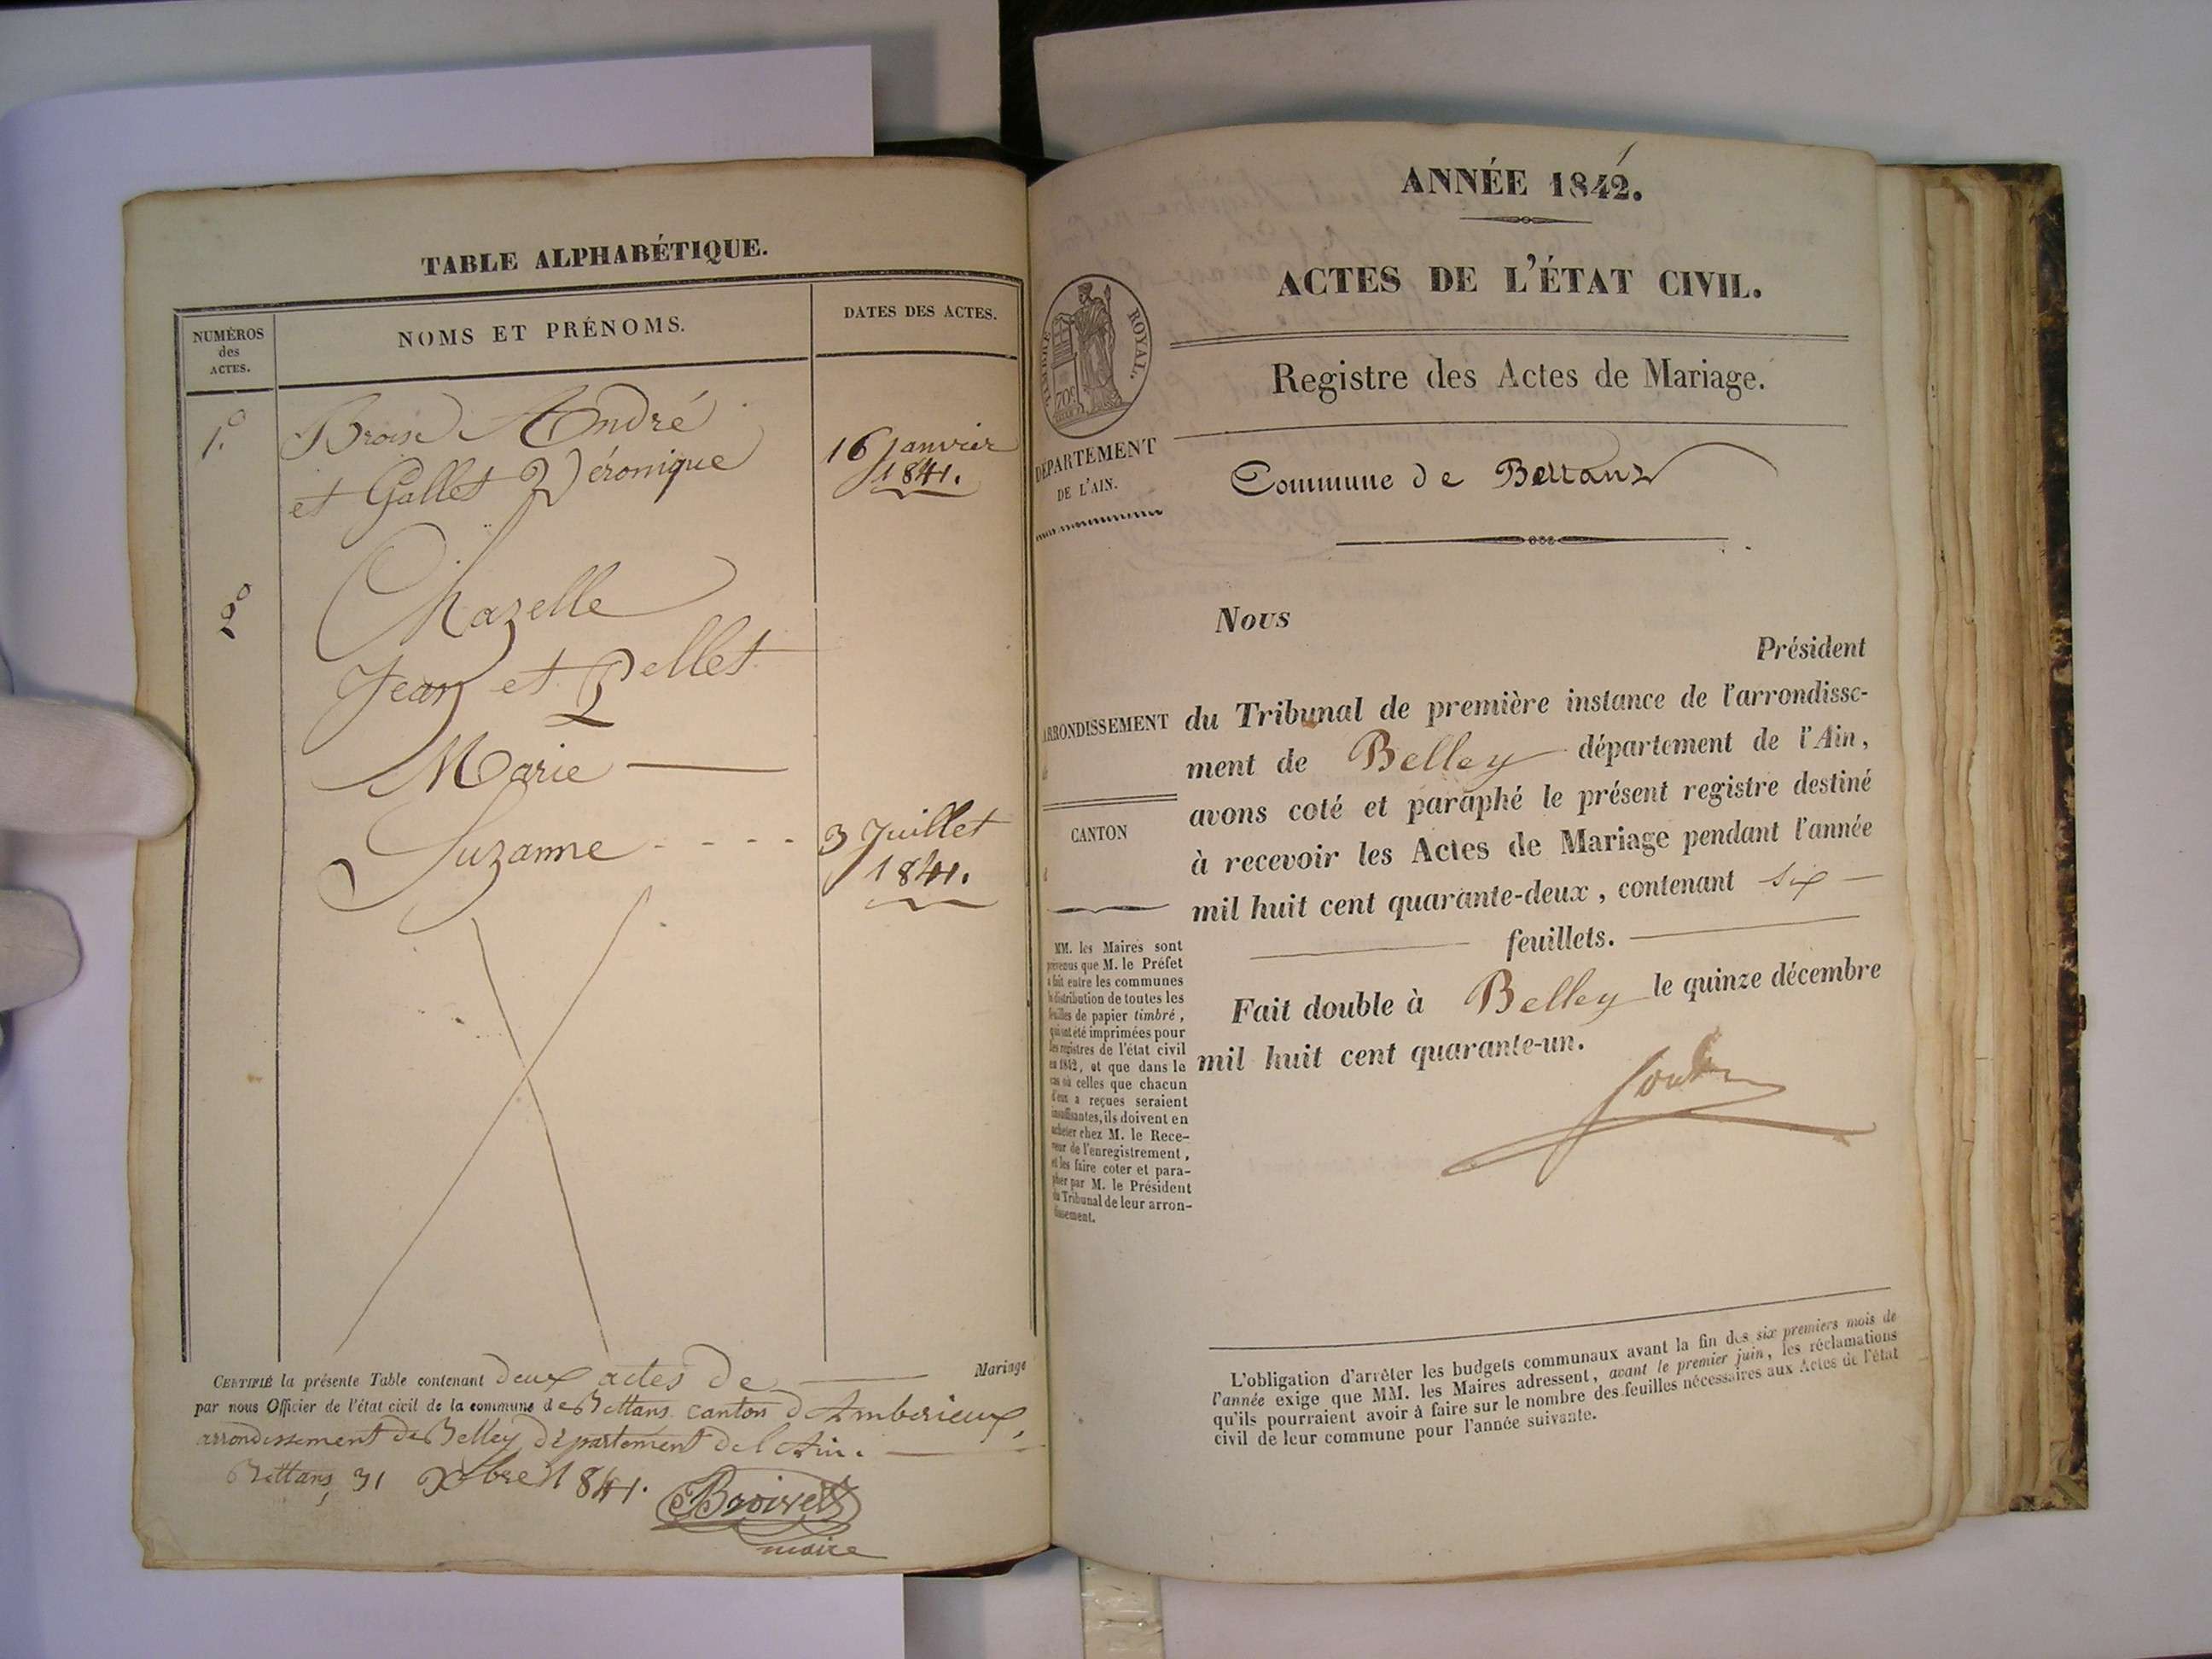 TABLE ALPHABÉTIQUE.
NUMÉROS
des
ACTES.
NOMS ET PRÉNOMS.
DATES DES ACTES.
1.º
Broise André
et Gallet Véronique
16 janvier
1841.
2º
Chazelle
Jean et Pellet
Marie
Suzanne - - - -
3 Juillet
1841.
CERTIFIÉ la présente Table contenant deux actes de Mariage
par nous Officier de l'état civil de la commune de Bettans canton d'Amberieux,
arrondissement de Belley, département de l'Ain.
Bettans, 31 Xbre 1841.
maire
ANNÉE 1842.
ACTES DE L'ÉTAT CIVIL.
TIMBRE ROYAL.
70c
Registre des Actes de Mariage.
DÉPARTEMENT
DE L'AIN.
Commune de Bettans
Nous
Président
ARRONDISSEMENT
du Tribunal de première instance de l'arrondisse-
ment de Belley département de l'Ain,
avons coté et paraphé le présent registre destiné
CANTON
à recevoir les Actes de Mariage pendant l'année
mil huit cent quarante-deux, contenant six
feuillets.
Fait double à Belley le quinze décembre
mil huit cent quarante-un.
MM. les Maires sont
prévenus que M. le Préfet
a fait entre les communes
la distribution de toutes les
feuilles de papier timbré,
qui ont été imprimées pour
les registres de l'état civil
en 1842, et que dans le
cas où celles que chacun
d'eux a reçues seraient
insuffisantes, ils doivent en
acheter chez M. le Rece-
veur de l'enregistrement,
et les faire coter et para-
pher par M. le Président
du Tribunal de leur arron-
dissement.
L'obligation d'arrêter les budgets communaux avant la fin des six premiers mois de
l'année exige que MM. les Maires adressent, avant le premier juin, les réclamations
qu'ils pourraient avoir à faire sur le nombre des feuilles nécessaires aux Actes de l'état
civil de leur commune pour l'année suivante.